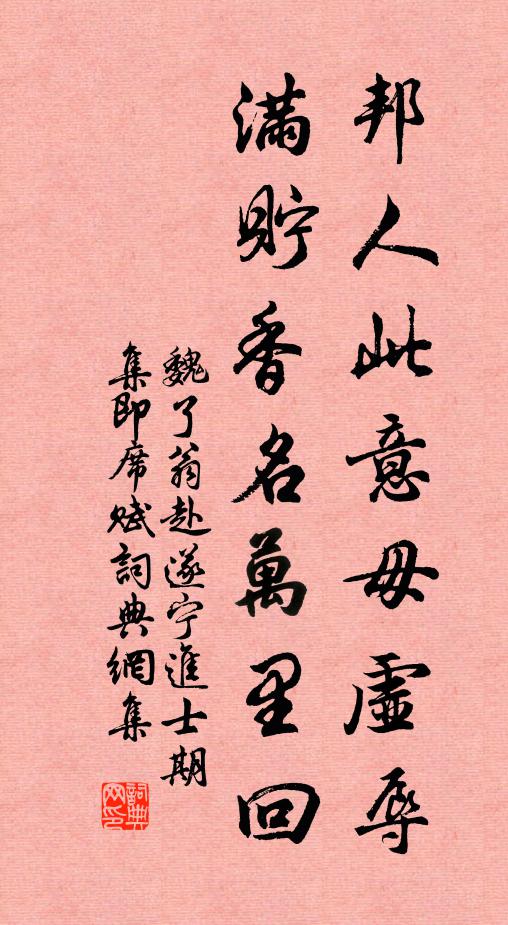 邦人此意毋虛辱
滿貯香名萬里回
魏了翁赴遂宁進士期
集即席賦詞典網集
詞典网印